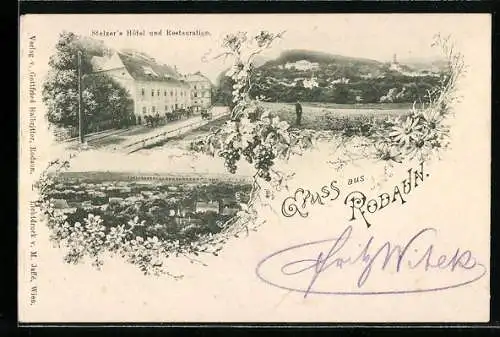 Stelzer's Hôtel und Restauration.
Gruss aus
Rodaun.
Fritz Witek
Verlag v. Gottfried Rodaun.
Lichtdruck v. M. Jaffé, Wien.